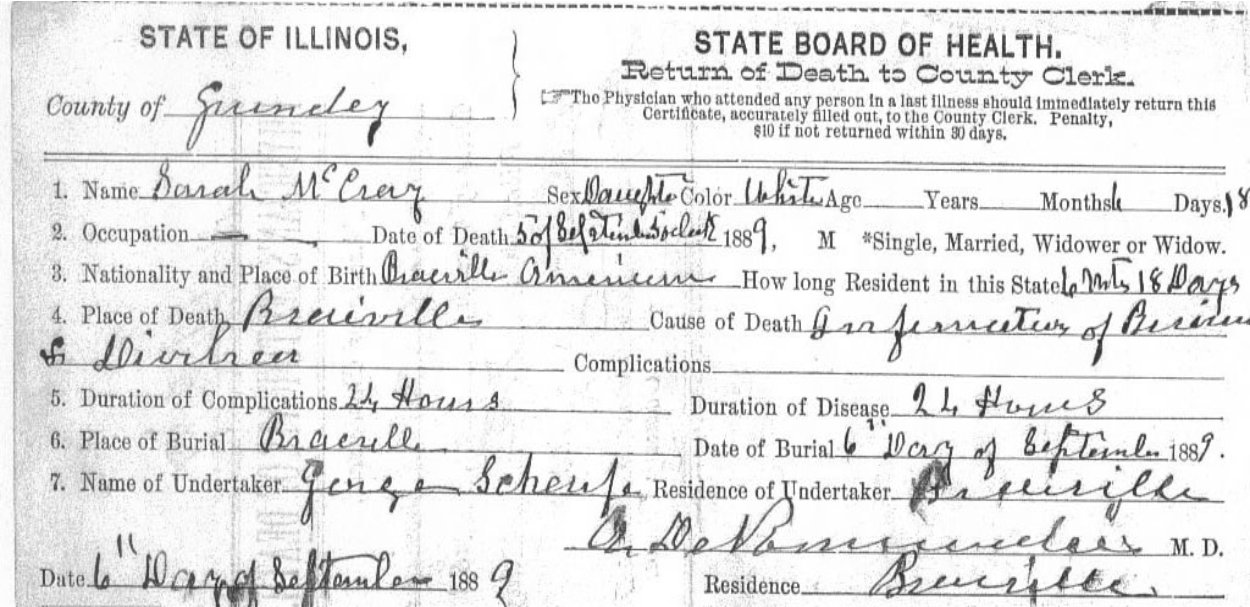 STATE OF ILLINOIS,
County of Grundey
STATE BOARD OF HEALTH.
Return of Death to County Clerk.
☞The Physician who attended any person in a last illness should immediately return this
Certificate, accurately filled out, to the County Clerk. Penalty,
$10 if not returned within 30 days.
1. Name Sarah McCray Sex Daughter Color White Age Years Months 6 Days 18
2. Occupation — Date of Death 5 of September 5 oclock 1889, M *Single, Married, Widower or Widow.
3. Nationality and Place of Birth Braceville How long Resident in this State 6 Mts 18 Days
4. Place of Death Braceville Cause of Death of
& Complications
5. Duration of Complications 24 Hours Duration of Disease 24 Hours
6. Place of Burial Braceville Date of Burial 6" Day of September 1889.
7. Name of Undertaker George Residence of Undertaker Braceville
M. D.
Date 6" Day of September 1889 Residence Braceville